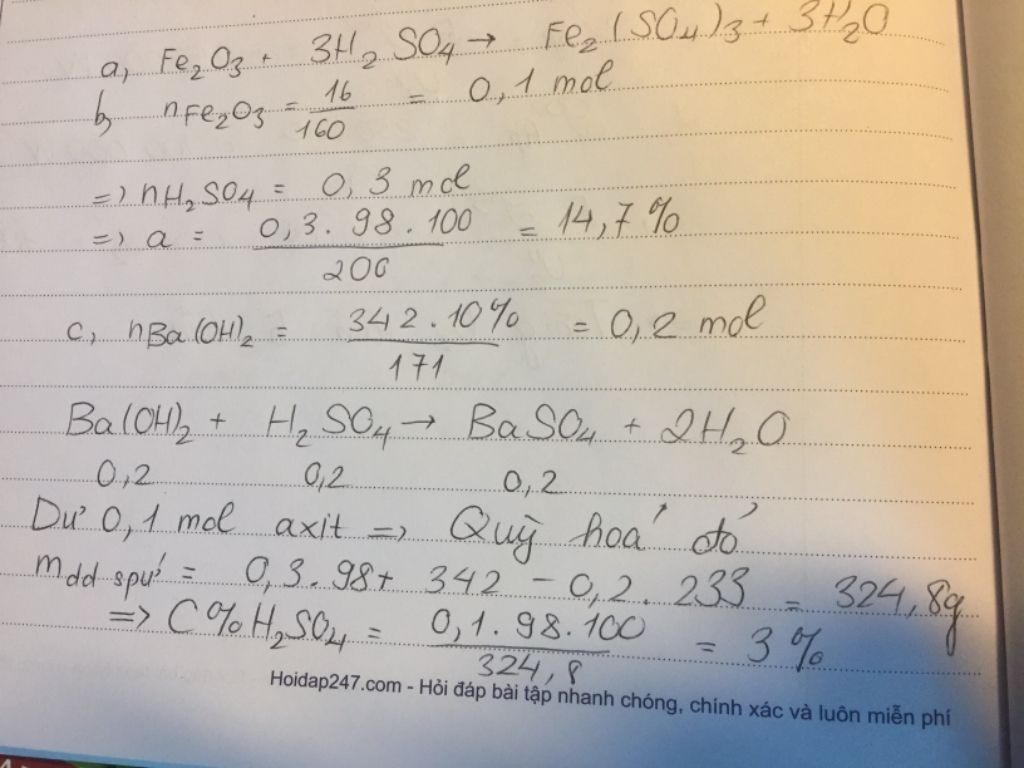 a, Fe₂O₃ + 3H₂SO₄ → Fe₂(SO₄)₃ + 3H₂O
b, nFe₂O₃ = 16/160 = 0,1 mol
=> nH₂SO₄ = 0,3 mol
=> a = 0,3.98.100/200 = 14,7%
c, nBa(OH)₂ = 342.10%/171 = 0,2 mol
Ba(OH)₂ + H₂SO₄ → BaSO₄ + 2H₂O
0,2 0,2 0,2
Dư 0,1 mol axit => Quỳ hoá đỏ
mdd spứ = 0,3.98 + 342 - 0,2.233 = 324,8g
=> C%H₂SO₄ = 0,1.98.100/324,8 = 3%
Hoidap247.com - Hỏi đáp bài tập nhanh chóng, chính xác và luôn miễn phí